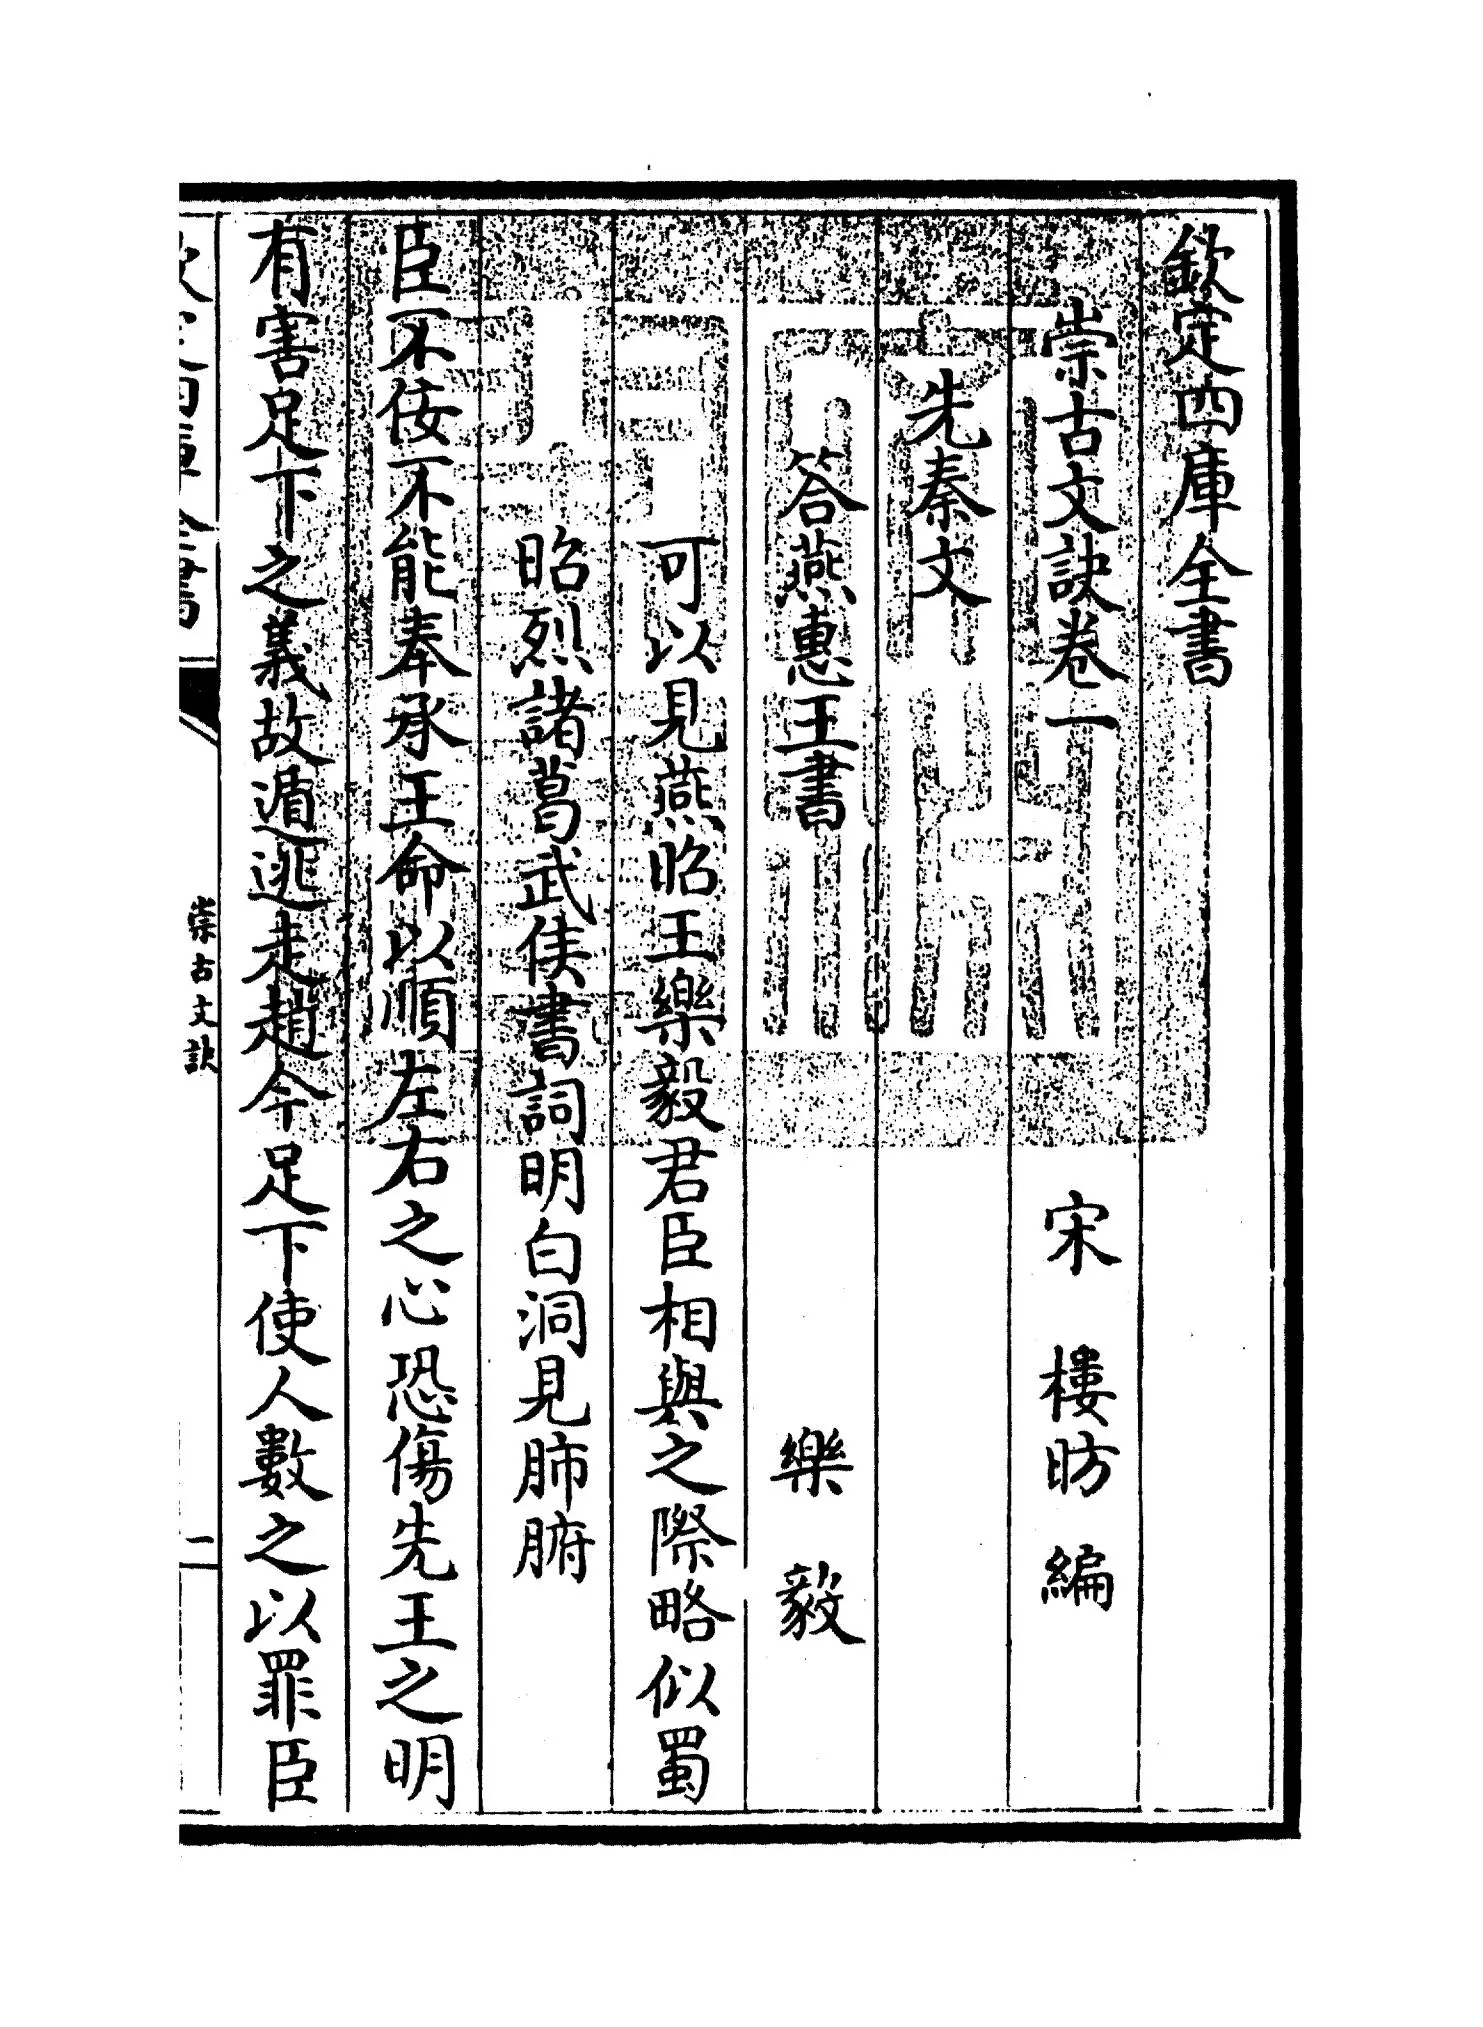 欽定四庫全書
崇古文訣卷一　宋　樓昉　編
先秦文
答燕惠王書　樂毅
可以見燕昭王樂毅君臣相與之際略似蜀
昭烈諸葛武侯書詞明白洞見肺腑
臣不佞不能奉承王命以順左右之心恐傷先王之明
有害足下之義故遁逃走趙今足下使人數之以罪臣
崇古文訣